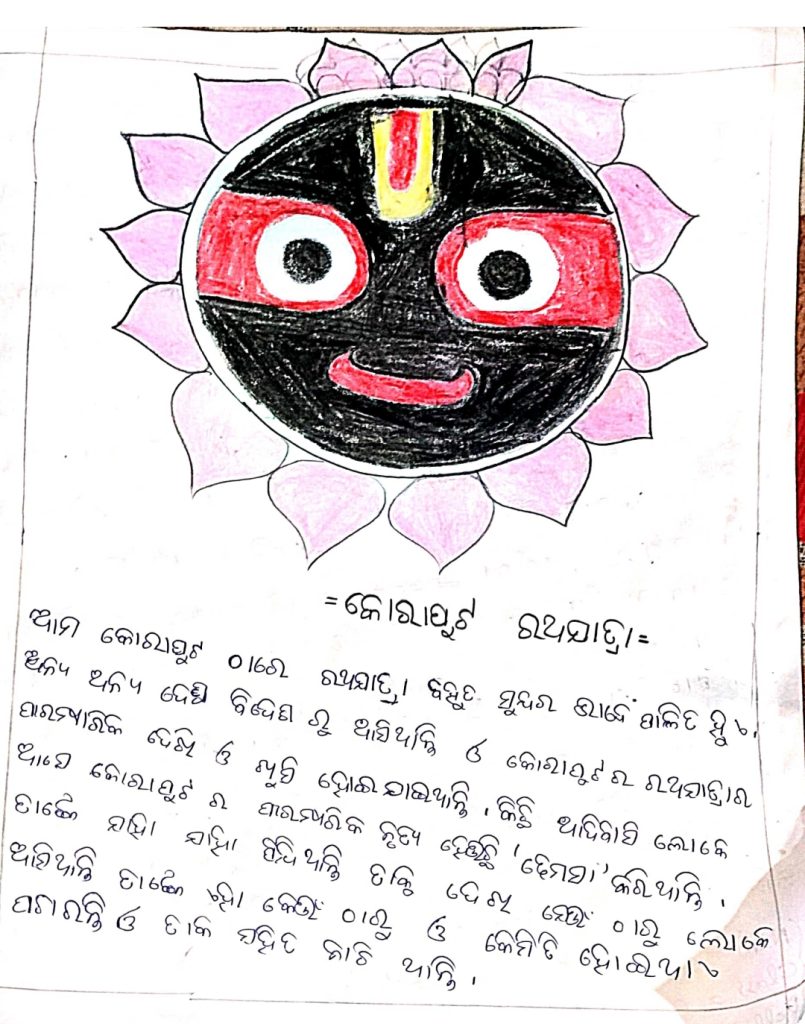 =କୋରାପୁଟ ରଥଯାତ୍ରା=
ଆମ କୋରାପୁଟ ଠାରେ ରଥଯାତ୍ରା ବହୁତ ସୁନ୍ଦର ଭାବେ ପାଳିତ ହୁଏ.
ଅନ୍ୟ ଅନ୍ୟ ଦେଶ ବିଦେଶ ରୁ ଆସିଥାନ୍ତି ଓ କୋରାପୁଟର ରଥଯାତ୍ରାର
ପାରମ୍ପାରିକ ଦେଖି ଓ ଖୁସି ହୋଇଯାଇଥାନ୍ତି. କିଛି ଆଦିବାସି ଲୋକେ
ଆସେ କୋରାପୁଟ ର ପାରମ୍ପରିକ ନୃତ୍ୟ ହେଉଛି 'ଢେମସା' କରିଥାନ୍ତି.
ଯାହା ପିନ୍ଧିଥାନ୍ତି ତାକୁ ଦେଖି ଠାରୁ ଲୋକେ
ଆସିଥାନ୍ତି ଠାରୁ ଓ କେମିତି ହୋଇଥାଏ
ପଚାରନ୍ତି ଓ ତାକ ସହିତ ନାଚି ଥାନ୍ତି.